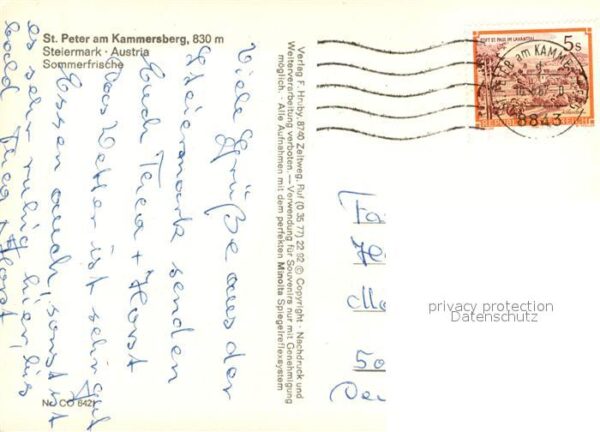 St. Peter am Kammersberg, 830 m
Steiermark · Austria
Sommerfrische
Viele Grüße aus der
Steiermark senden
Euch Thea + Horst
Das Wetter ist sehr gut
Essen auch, sonst ist
es sehr ruhig hier, bis
bald Thea + Horst
Nr. CO 8421
Verlag F. Hruby, 8740 Zeltweg, Ruf (0 35 77) 22 92 © Copyright · Nachdruck und
Weiterverarbeitung verboten. — Verwendung für Souvenirs nur mit Genehmigung
möglich. · Alle Aufnahmen mit dem perfekten Minolta Spiegelreflexsystem
STIFT ST. PAUL IM LAVANTTAL
5 S
REPUBLIK ÖSTERREICH
ST. PETER am KAMMERSBERG
8843
Fa
Ma
50
privacy protection
Datenschutz